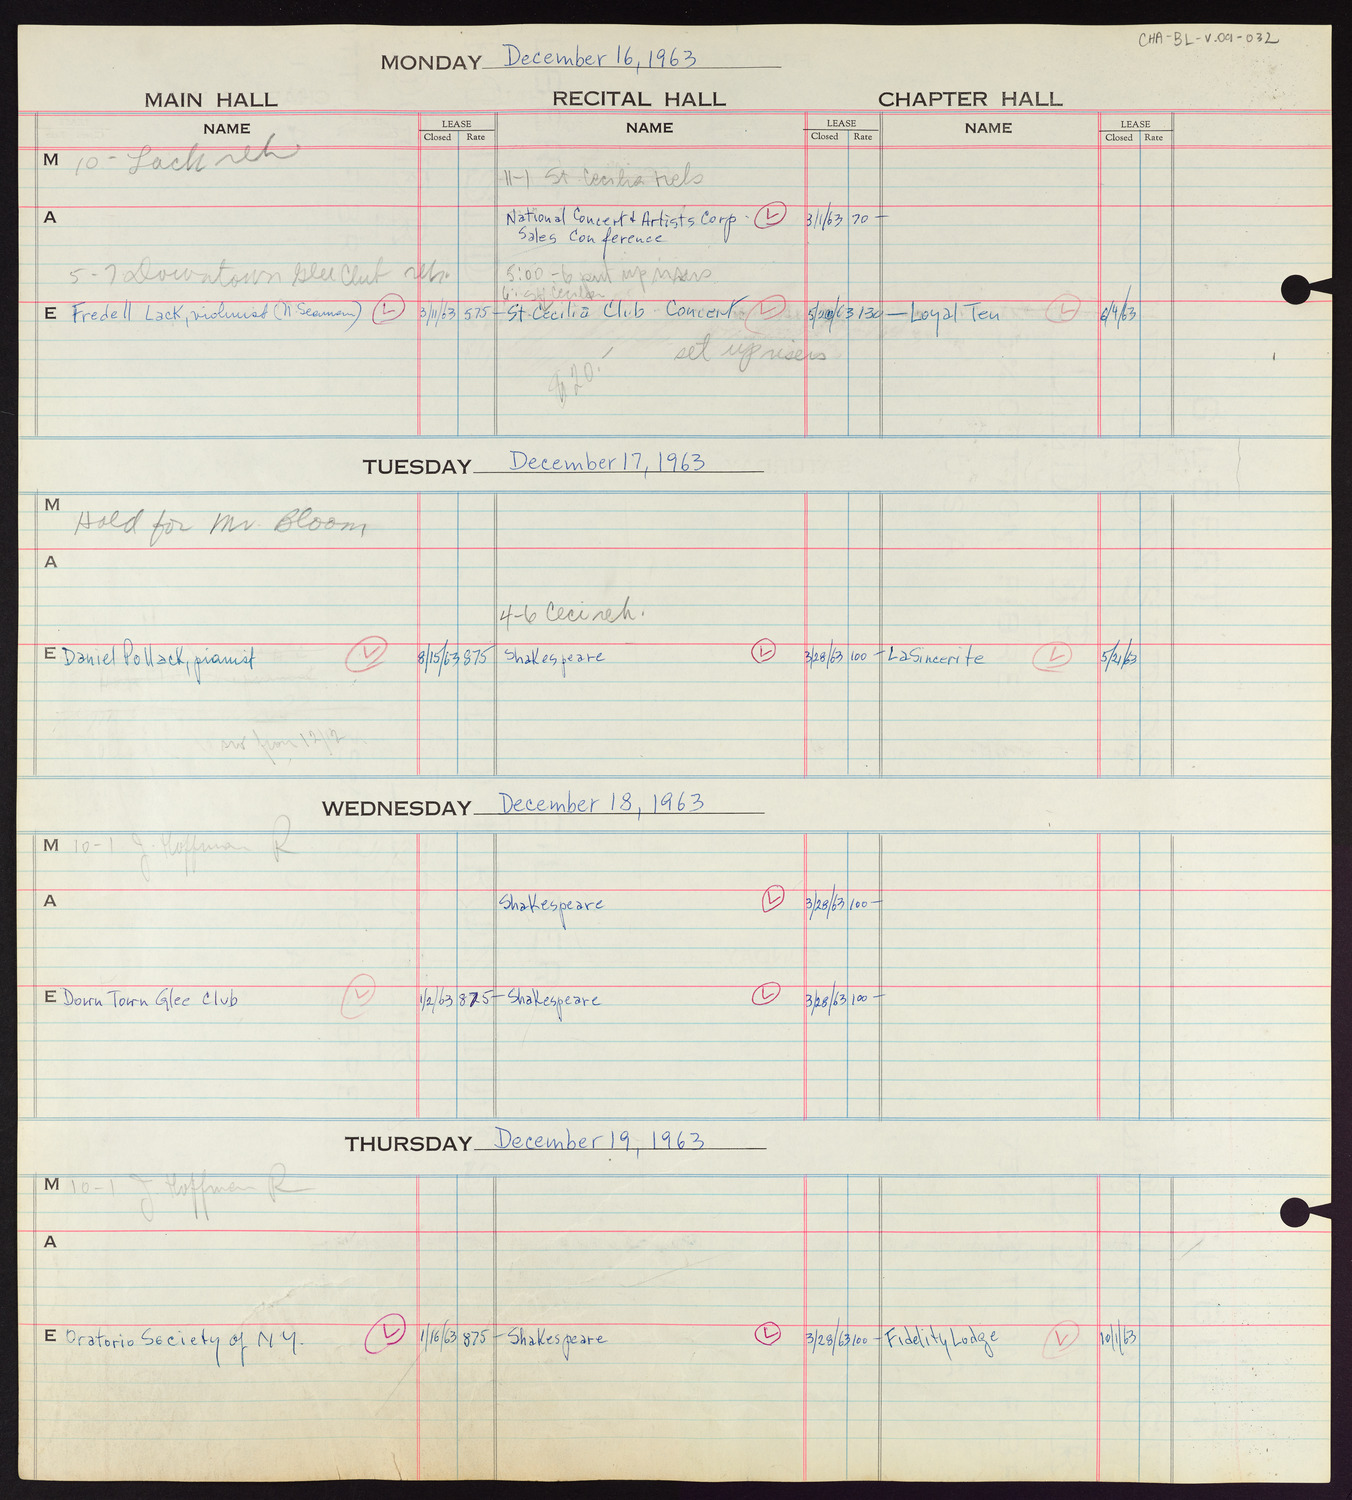 CHA-BL-V.09-032
MONDAY December 16, 1963
MAIN HALL RECITAL HALL CHAPTER HALL
NAME LEASE Closed Rate NAME LEASE Closed Rate NAME LEASE Closed Rate
M 10 - Lack reh
11-1 St Cecilia
A National Concert & Artists Corp. L 3/1/63 70 —
Sales Conference
5-7 Downtown Glee Club reh. 5:00-6 set up risers
6: St Cecilia
E Fredell Lack, violinist (N Seaman) L 3/11/63 575 — St. Cecilia Club Concert L 130 — Loyal Ten L 6/4/63
set up risers
TUESDAY December 17, 1963
M Hold for Mr. Bloom
A
4-6 Ceci reh.
E Daniel Pollack, pianist L 8/15/63 875 Shakespeare L 3/28/63 100 — LaSincerite L 5/21/63
from 12/2
WEDNESDAY December 18, 1963
M 10-1 J. Hoffman R
A Shakespeare L 3/28/63 100 —
E Down Town Glee Club L 1/2/63 875 — Shakespeare L 3/28/63 100 —
THURSDAY December 19, 1963
M 10-1 J. Hoffman R
A
E Oratorio Society of N Y. L 1/16/63 875 — Shakespeare L 3/28/63 100 — Fidelity Lodge L 10/1/63